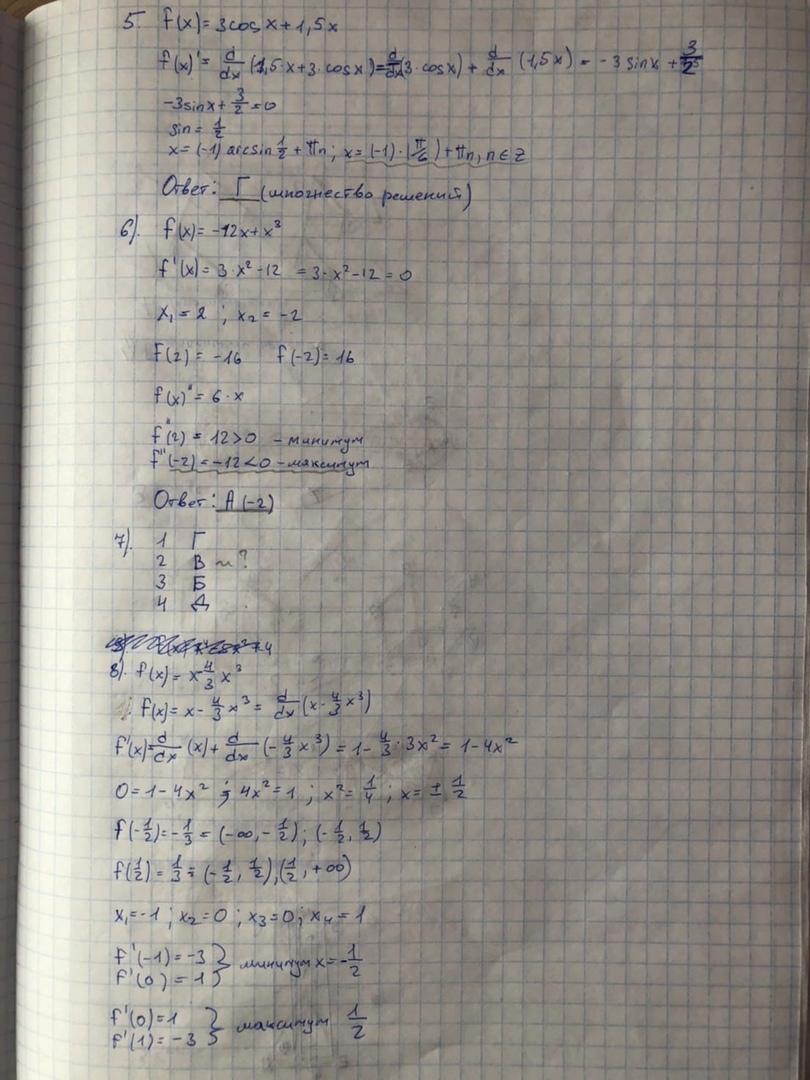 5. f(x) = 3cos x + 1,5x
f(x)' = d/dx (1,5·x + 3·cosx) = d/dx (3·cosx) + d/dx (1,5x) = -3 sinx + 3/2
-3sinx + 3/2 = 0
sin = 1/2
x = (-1) arcsin 1/2 + πn; x = (-1)·(π/6) + πn, n ∈ Z
Ответ: Г (множество решений)
6). f(x) = -12x + x³
f'(x) = 3·x² - 12 = 3·x² - 12 = 0
x₁ = 2 ; x₂ = -2
f(2) = -16 f(-2) = 16
f(x)'' = 6·x
f''(2) = 12 > 0 - минимум
f''(-2) = -12 < 0 - максимум
Ответ: А (-2)
7). 1 Г
2 В ~?
3 Б
4 Д
8). f(x) = x - 4/3 x³
f(x) = x - 4/3 x³ = d/dx (x - 4/3 x³)
f'(x) = d/dx (x) + d/dx (-4/3 x³) = 1 - 4/3 · 3x² = 1 - 4x²
0 = 1 - 4x² ; 4x² = 1 ; x² = 1/4 ; x = ± 1/2
f(-1/2) = -1/3 = (-∞, -1/2) ; (-1/2, 1/2)
f(1/2) = 1/3 = (-1/2, 1/2), (1/2, +∞)
x₁ = -1 ; x₂ = 0 ; x₃ = 0 ; x₄ = 1
f'(-1) = -3 } минимум x = -1/2
f'(0) = 1
f'(0) = 1 } максимум 1/2
f'(1) = -3